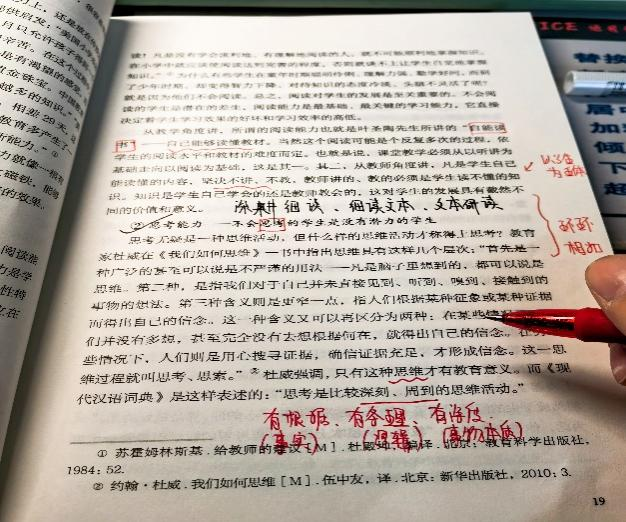 读！凡是没有学会流利地、有理解地阅读的人，就不可能顺利地掌握知识。
在小学中就应该使阅读达到完善的程度，否则就谈不上让学生自觉地掌握
知识。”①为什么有些学生在童年时期聪明伶俐、理解力强、勤学好问，而到
了少年时期，却变得智力下降，对待知识的态度冷淡，头脑不灵活了呢？
就是因为他们不会阅读。总之，阅读对学生的发展是至关重要的，不会阅
读的学生是潜在的差生，阅读能力是最基础、最关键的学习能力，它直接
决定着学生学习效果的好坏和学习效率的高低。
从教学角度讲，所谓的阅读能力也就是叶圣陶先生所讲的“自能读
书”——自己能够读懂教材。当然这个阅读可能是个反复多次的过程，依
学生的阅读水平和教材的难度而定。也就是说，课堂教学必须从以听讲为
基础走向以阅读为基础，这是其一。其二，从教师角度讲，凡是学生自己
能读懂的内容，坚决不讲、不教，教师讲的、教的必须是学生读不懂的知
识。知识是学生自己学会的还是教师教会的，这对学生的发展具有截然不
同的价值和意义。
细读、细读文本、文本研读
②思考能力——不会思考的学生是没有潜力的学生
思考无疑是一种思维活动，但什么样的思维活动才称得上思考？教育
家杜威在《我们如何思维》一书中指出思维具有这样几个层次：“首先是一
种广泛的甚至可以说是不严谨的用法——凡是脑子里想到的，都可以说是
思维。第二种，是指我们对于自己并未直接见到、听到、嗅到、接触到的
事物的想法。第三种含义则是更窄一点，指人们根据某种征象或某种证据
而得出自己的信念。这一种含义又可以再区分为两种：在某些情
们并没有多想，甚至完全没有去想根据何在，就得出自己的信念。在
些情况下，人们则是用心搜寻证据，确信证据充足，才形成信念。这一思
维过程就叫思考、思索。”②杜威强调，只有这种思维才有教育意义。而《现
代汉语词典》是这样表述的：“思考是比较深刻、周到的思维活动。”
有根据、有条理、有深度
（事实）（逻辑）（事物本质）
环环
相扣
① 苏霍姆林斯基．给教师的建议［M］．杜殿坤，编译．北京：教育科学出版社，
1984：52．
② 约翰·杜威．我们如何思维［M］．伍中友，译．北京：新华出版社，2010：3．
19